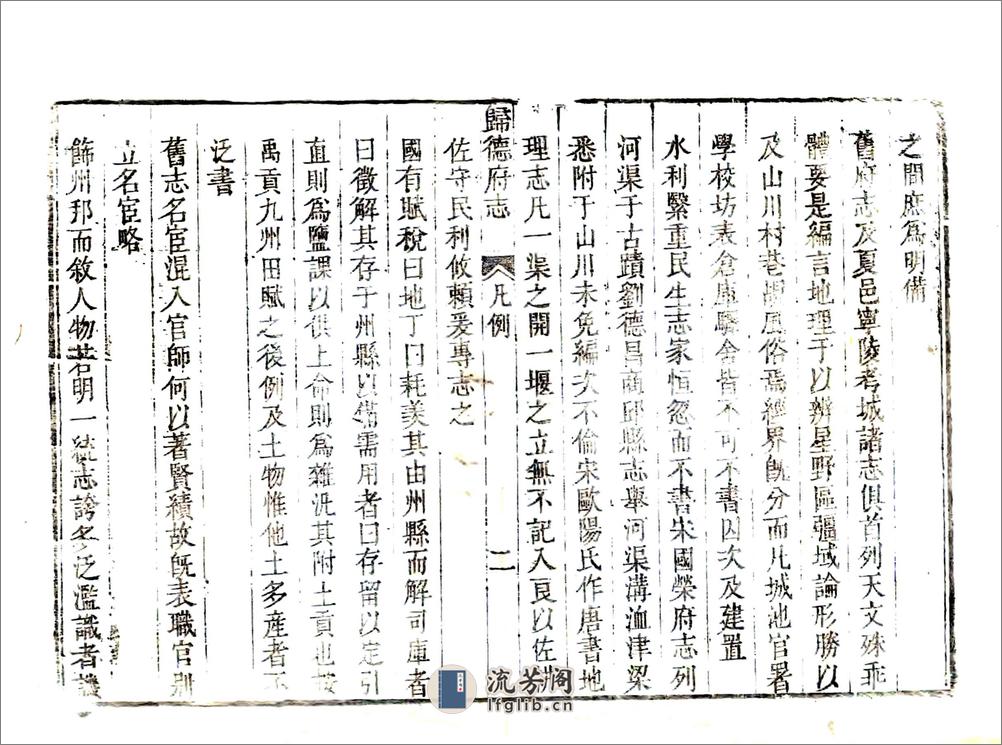 之間庶為明備
舊府志及夏邑寧陵考城諸志俱首列天文殊乖
體要是編言地理于以辨星野區疆域論形勝以
及山川村巷風俗焉經界旣分而凡城池官署
學校坊表倉庫驛舍皆不可不書因次及建置
水利緊重民生志家恒忽而不書宋國榮府志列
河渠于古蹟劉德昌商邱縣志舉河渠溝洫津梁
悉附于山川未免編次不倫宋歐陽氏作唐書地
理志凡一渠之開一堰之立無不記入良以佐
歸德府志 凡例 二
佐守民利攸賴爰專志之
國有賦稅曰地丁曰耗羨其由州縣而解司庫者
曰徵解其存于州縣以備需用者曰存留以定引
直則為鹽課以供上命則為雜汎其附土貢也按
禹貢九州田賦之後例及土物惟他土多產者不
泛書
舊志名宦混入官師何以著賢績故旣表職官別
立名宦略
飾州邦而敘人物若明一統志誇多泛濫識者譏
流芳阁
lfglib.cn